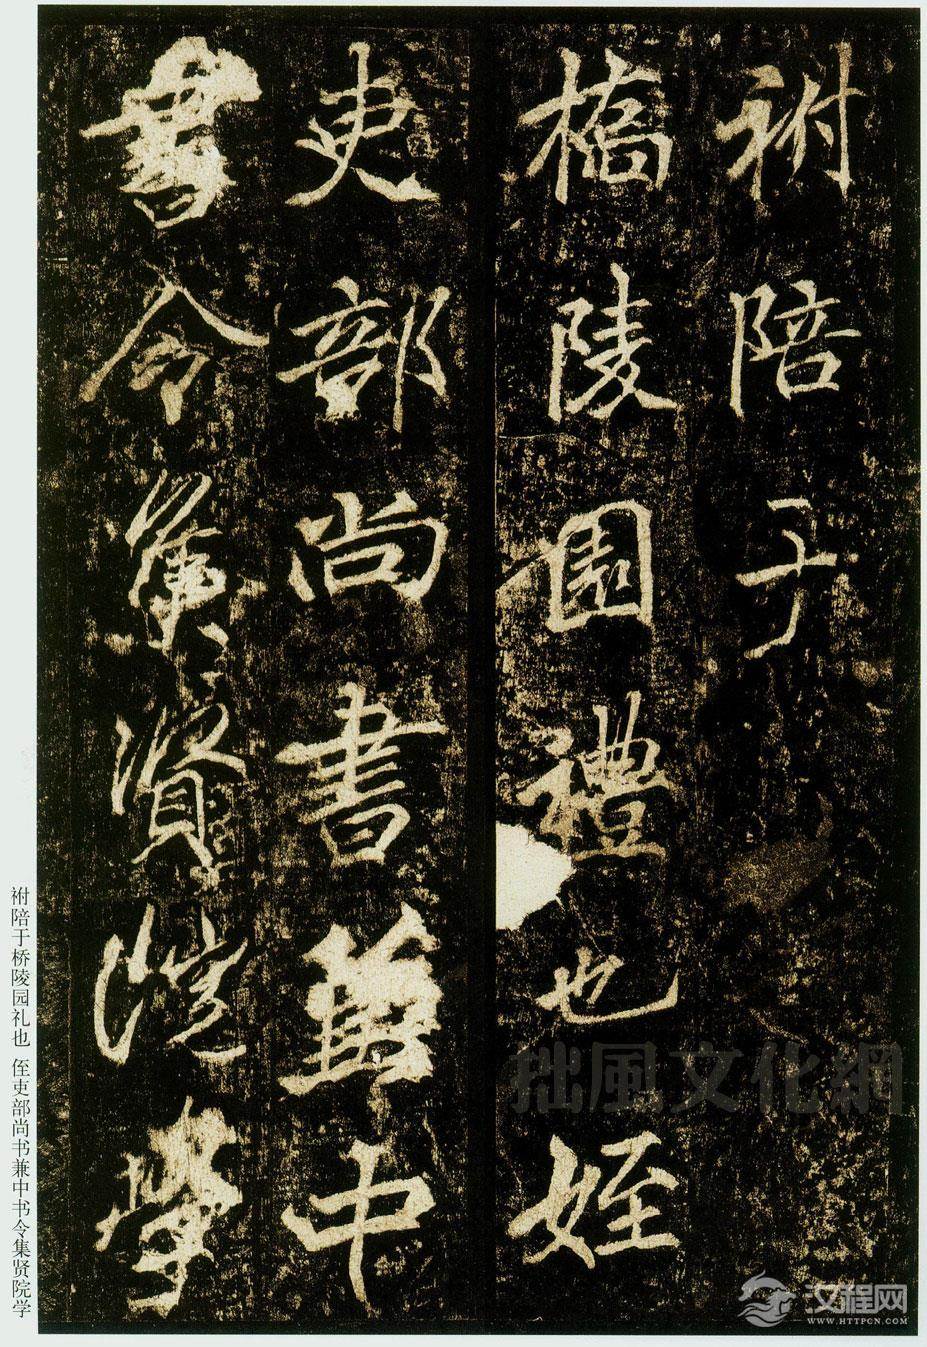 祔陪于
橋陵園禮也姪
吏部尚書兼中
書令集賢院學
祔陪于桥陵园礼也 侄吏部尚书兼中书令集贤院学
拙風文化網
汉程网
WWW.HTTPCN.COM